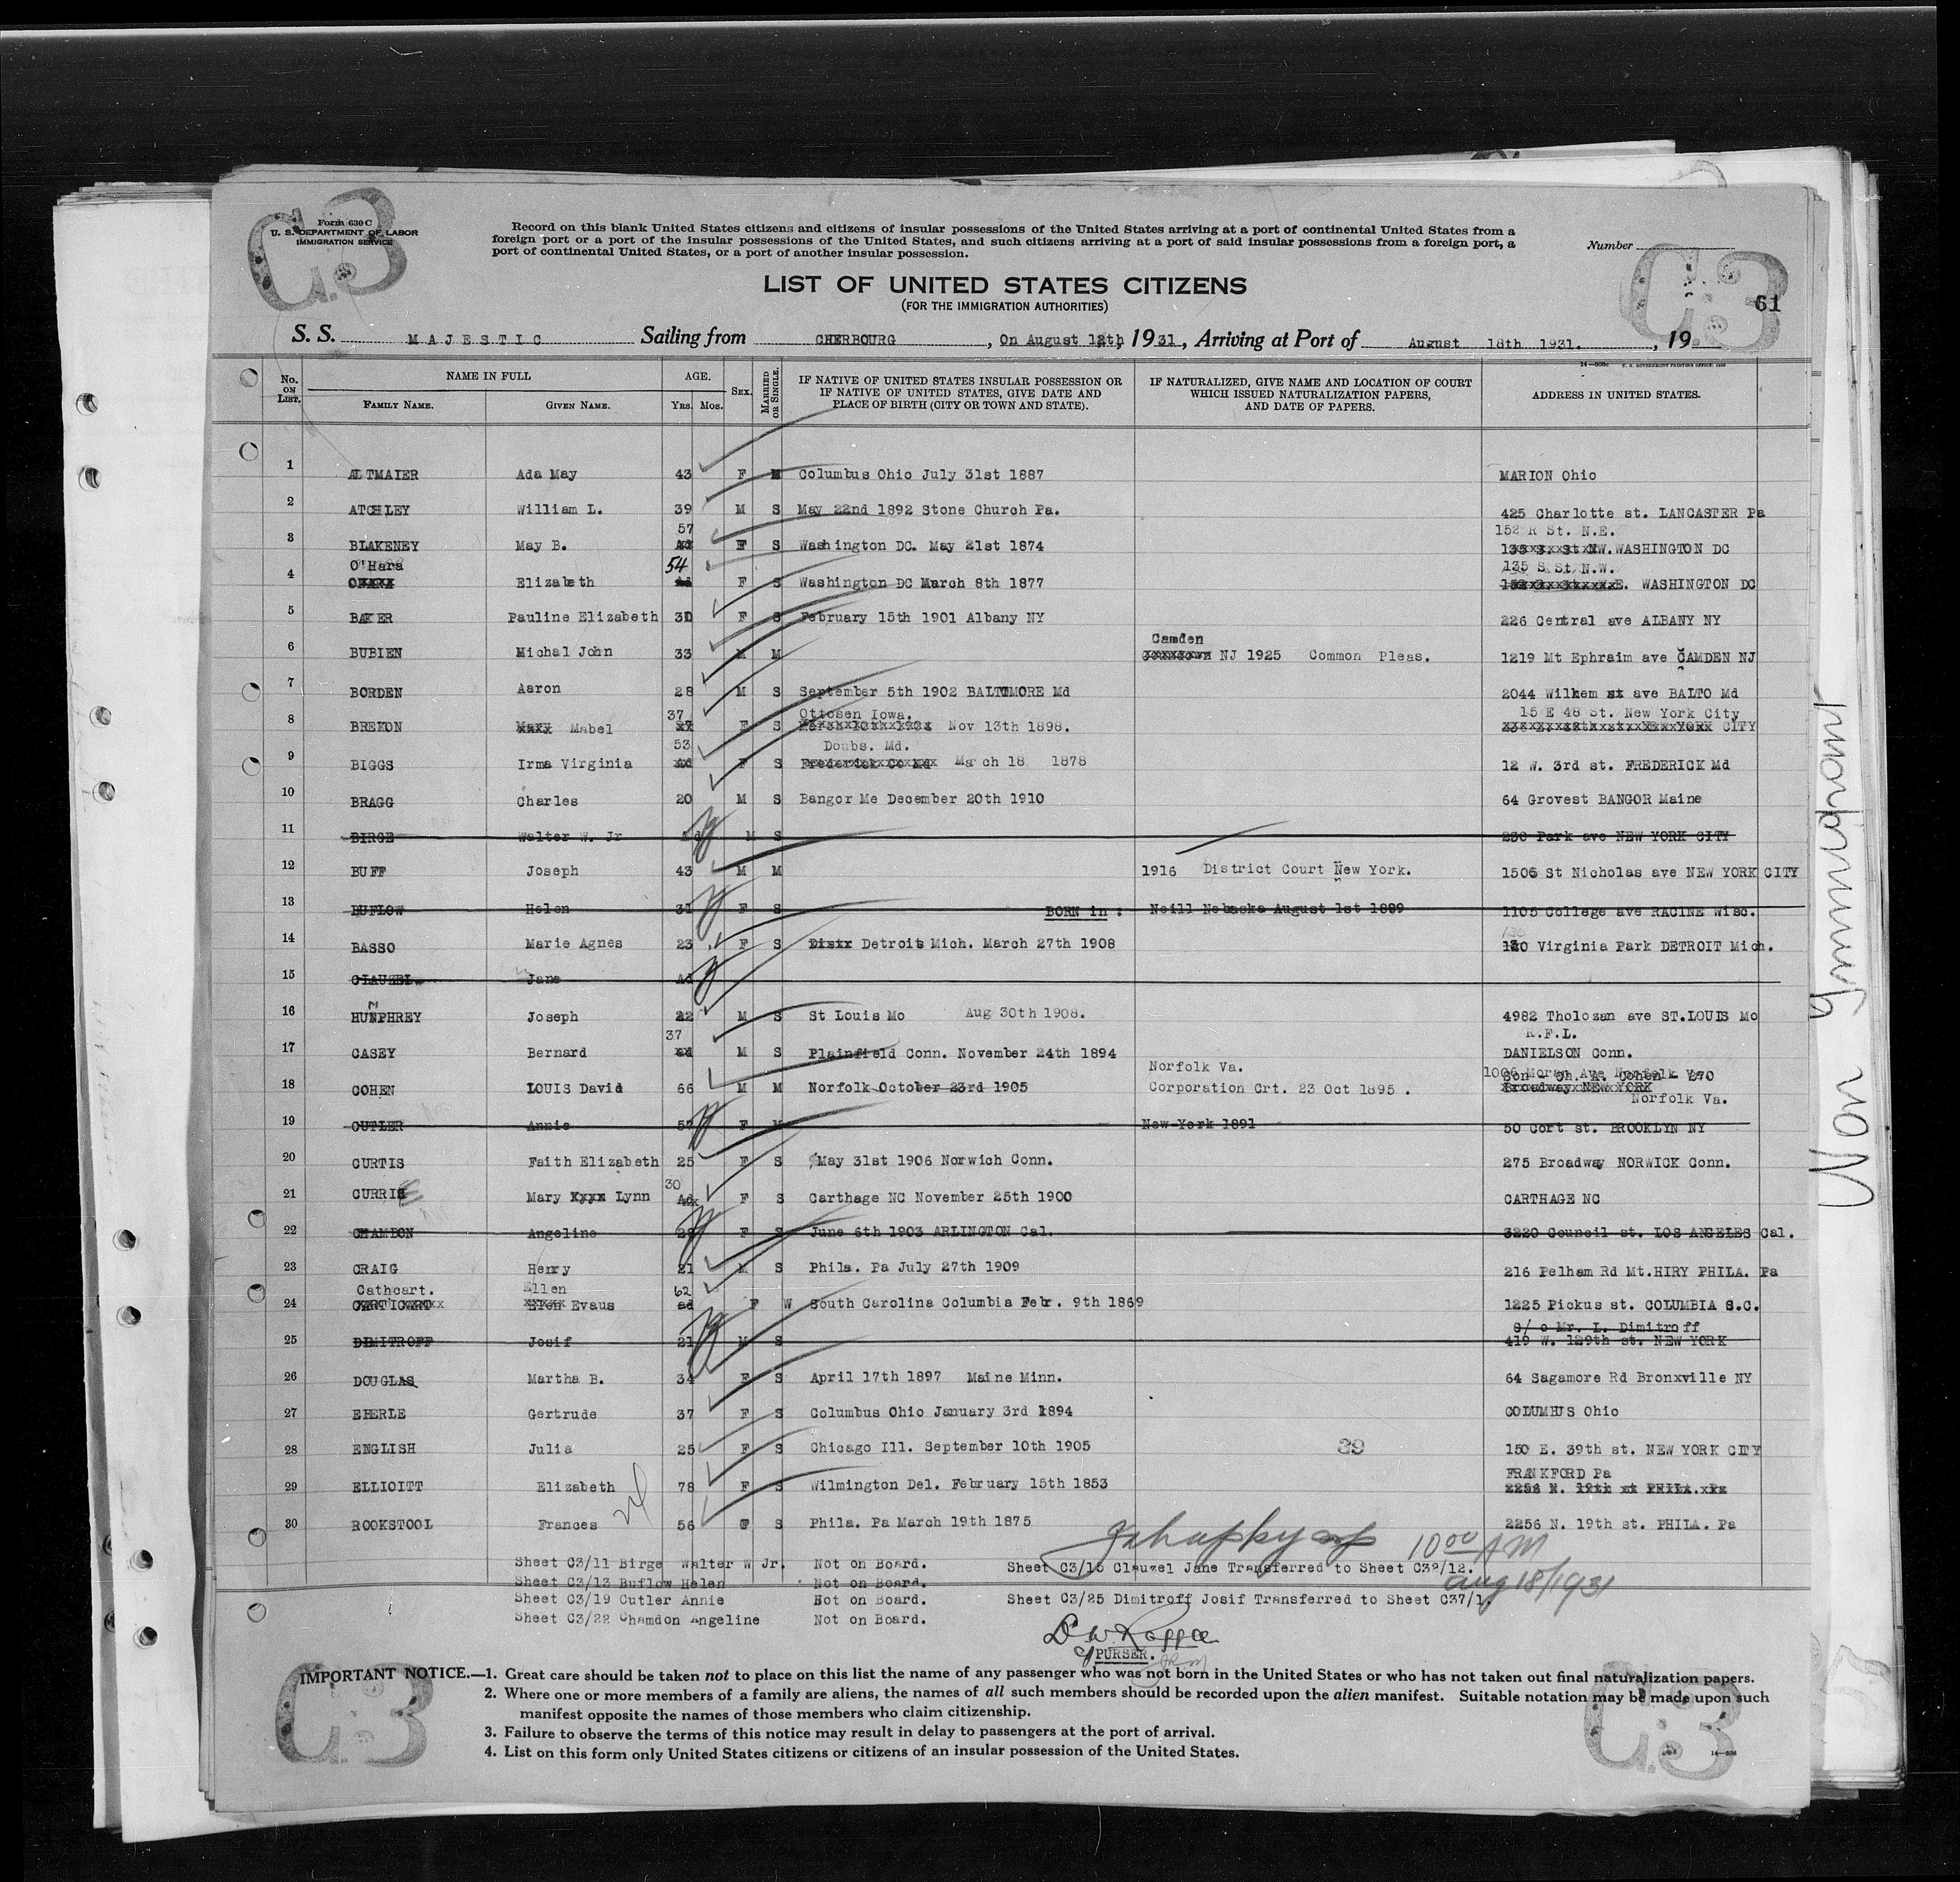 Form 630 C
U. S. DEPARTMENT OF LABOR
IMMIGRATION SERVICE
C.3
Record on this blank United States citizens and citizens of insular possessions of the United States arriving at a port of continental United States from a
foreign port or a port of the insular possessions of the United States, and such citizens arriving at a port of said insular possessions from a foreign port, a
port of continental United States, or a port of another insular possession.
Number
C.3
61
LIST OF UNITED STATES CITIZENS
(FOR THE IMMIGRATION AUTHORITIES)
S. S. MAJESTIC Sailing from CHERBOURG, On August 12th, 1931, Arriving at Port of August 18th 1931., 19
14—608c U. S. GOVERNMENT PRINTING OFFICE: 1930
No. ON LIST. NAME IN FULL AGE. SEX. MARRIED OR SINGLE. IF NATIVE OF UNITED STATES INSULAR POSSESSION OR IF NATIVE OF UNITED STATES, GIVE DATE AND PLACE OF BIRTH (CITY OR TOWN AND STATE). IF NATURALIZED, GIVE NAME AND LOCATION OF COURT WHICH ISSUED NATURALIZATION PAPERS, AND DATE OF PAPERS. ADDRESS IN UNITED STATES.
FAMILY NAME. GIVEN NAME. YRS. MOS.
1 ALTMAIER Ada May 43 F M Columbus Ohio July 31st 1887 MARION Ohio
2 ATCHLEY William L. 39 M S May 22nd 1892 Stone Church Pa. 425 Charlotte st. LANCASTER Pa
57 152 R St. N.E.
3 BLAKENEY May B. F S Washington DC. May 21st 1874 135 S. St NW. WASHINGTON DC
O'Hara 54 135 S St N.W.
4 OHARA Elizabeth Ad F S Washington DC March 8th 1877 E. WASHINGTON DC
5 BAKER Pauline Elizabeth 30 F S February 15th 1901 Albany NY 226 Central ave ALBANY NY
Camden
6 BUBIEN Michal John 33 M M NJ 1925 Common Pleas. 1219 Mt Ephraim ave CAMDEN NJ
7 BORDEN Aaron 28 M S September 5th 1902 BALTIMORE Md 2044 Wilkem st ave BALTO Md
37 Ottosen Iowa. 15 E 48 St. New York City
8 BREKON Mary Mabel 27 F S Nov 13th 1898. YORK CITY
53 Doubs. Md.
9 BIGGS Irma Virginia F S Frederick Co Md March 18 1878 12 W. 3rd st. FREDERICK Md
10 BRAGG Charles 20 M S Bangor Me December 20th 1910 64 Grovest BANGOR Maine
11 BIRGE Walter W. Jr Ad M S 230 Park ave NEW YORK CITY
12 BUFF Joseph 43 M M 1916 District Court New York. 1506 St Nicholas ave NEW YORK CITY
13 BUFLOW Helen 31 F S BORN in : Neill Nebaska August 1st 1899 1105 College ave RACINE Wisc.
14 BASSO Marie Agnes 23 F S Distr Detroit Mich. March 27th 1908 130 Virginia Park DETROIT Mich.
15 CLAUZEL Jane Ad
16 HUMPHREY Joseph 22 M S St Louis Mo Aug 30th 1908. 4982 Tholozan ave ST.LOUIS Mo
37 R.F.L.
17 CASEY Bernard M S Plainfield Conn. November 24th 1894 DANIELSON Conn.
Norfolk Va. 1006 Moran Ave Norfolk Va
Son - Ch. A. Cohen - 270
18 COHEN LOUIS David 66 M M Norfolk October 23rd 1905 Corporation Crt. 23 Oct 1895 . Broadway NEW YORK
Norfolk Va.
19 CUTLER Annie 57 F M New York 1891 50 Cort st. BROOKLYN NY
20 CURTIS Faith Elizabeth 25 F S May 31st 1906 Norwich Conn. 275 Broadway NORWICK Conn.
30
21 CURRIE Mary Lynn Ad F S Carthage NC November 25th 1900 CARTHAGE NC
22 CHAMBON Angeline 28 F S June 6th 1903 ARLINGTON Cal. 3220 Council st. LOS ANGELES Cal.
23 CRAIG Henry 21 M S Phila. Pa July 27th 1909 216 Pelham Rd Mt.HIRY PHILA. Pa
Cathcart. Ellen 62
24 Evaus ad F W South Carolina Columbia Febr. 9th 1869 1225 Pickus st. COLUMBIA S.C.
C/ o Mr. L. Dimitroff
25 DIMITROFF Josif 21 M S 419 W. 129th st. NEW YORK
26 DOUGLAS Martha B. 34 F S April 17th 1897 Maine Minn. 64 Sagamore Rd Bronxville NY
27 EBERLE Gertrude 37 F S Columbus Ohio January 3rd 1894 COLUMBUS Ohio
28 ENGLISH Julia 25 F S Chicago Ill. September 10th 1905 39 150 E. 39th st. NEW YORK CITY
FRANKFORD Pa
29 ELLIOITT Elizabeth 78 F S Wilmington Del. February 15th 1853 2256 N. 19th st PHILA. Pa
30 ROOKSTOOL Frances 56 F S Phila. Pa March 19th 1875 2256 N. 19th st. PHILA. Pa
10 00 AM
Aug 18/1931
Sheet C3/11 Birge Walter W Jr. Not on Board. Sheet C3/15 Clauzel Jane Transferred to Sheet C39/12.
Sheet C3/13 Buflow Helen Not on Board.
Sheet C3/19 Cutler Annie Not on Board. Sheet C3/25 Dimitroff Josif Transferred to Sheet C37/1.
Sheet C3/22 Chamdon Angeline Not on Board.
PURSER.
IMPORTANT NOTICE.—1. Great care should be taken not to place on this list the name of any passenger who was not born in the United States or who has not taken out final naturalization papers.
2. Where one or more members of a family are aliens, the names of all such members should be recorded upon the alien manifest. Suitable notation may be made upon such
manifest opposite the names of those members who claim citizenship.
3. Failure to observe the terms of this notice may result in delay to passengers at the port of arrival.
4. List on this form only United States citizens or citizens of an insular possession of the United States.
C.3
C.3
14—608